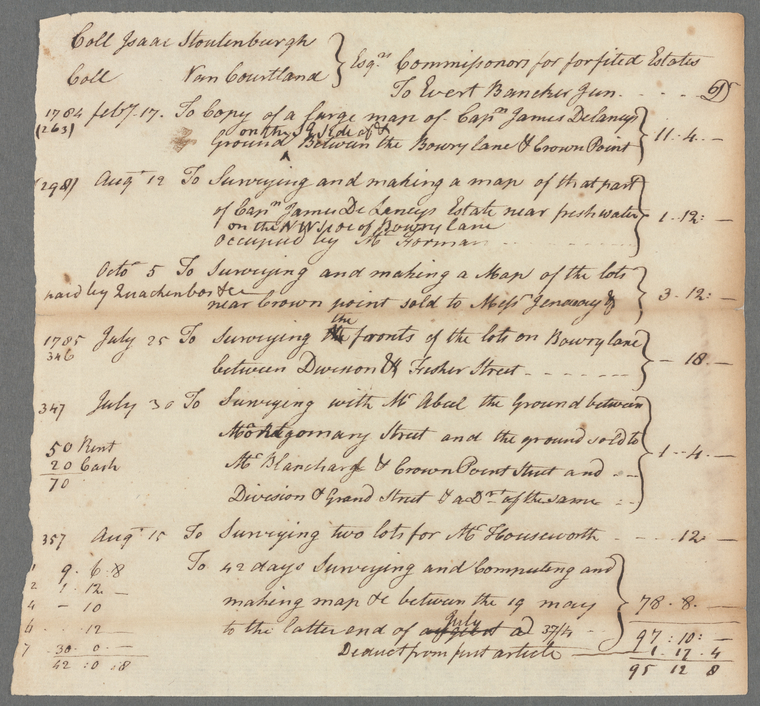 Coll Isaac Stoutenburgh
Coll Van Courtland
Esqrs Commissonors for forfited Estates
To Evert Bancker Jun. Dr
1784 feby. 17. To Copy of a large map of Capn James Delancys
(263) on the S Side of &
ground Between the Bowry lane & Crown Point 11 .. 4 .. —
(298) Augt 12 To Surveying and making a map of that part
of Capn James De Lancys Estate near freshwater 1 .. 12: —
on the NW side of Bowry lane
occupied by Mr Forman
Octor 5 To Surveying and making a Map of the lots
paid by Quackenbos &c near Crown point sold to Messrs Janeway & 3 .. 12: —
1785 July 25 To Surveying the fronts of the lots on Bowry lane
346 between Division & Fisher Street — 18. —
347 July 30 To Surveying with Mr Abeel the Ground between
Montgomary Street and the ground sold to
50 Rent
20 Cash Mr Blanchard & Crown Point Street and 1 .. 4 .. —
70 Division & Grand Street & a Dr~t of the same
357 Augt 15 To Surveying two lots for Mr Houseworth 12 —
1 9 .. 6 .. 8 To 42 days Surveying and Computing and
2 1 .. 12 .. — making map &c between the 19 may
4 — 10 July 78 .. 8 .. —
6 12 — to the latter end of august a 37/4 97 : 10 : —
7 30 .. 0 .. — Deduct from first article 1 .. 17 .. 4
42 : 0 : 8 95 12 8